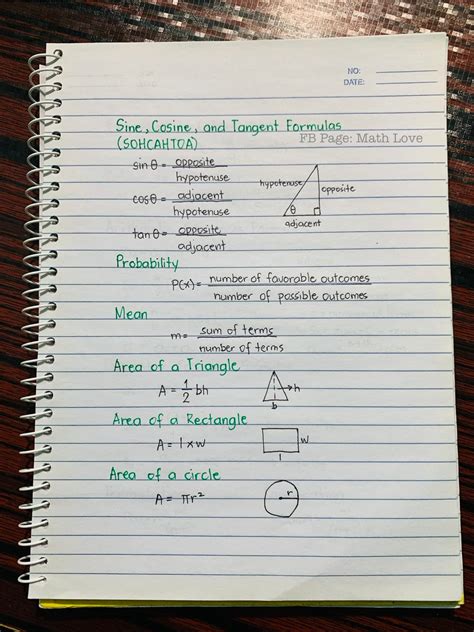 NO:
DATE:
Sine, Cosine, and Tangent Formulas
(SOHCAHTOA)
FB Page: Math Love
sin θ = opposite
hypotenuse
hypotenuse
opposite
cos θ = adjacent
hypotenuse
θ
adjacent
tan θ = opposite
adjacent
Probability
P(x) = number of favorable outcomes
number of possible outcomes
Mean
m = sum of terms
number of terms
Area of a Triangle
A = 1/2 bh
h
b
Area of a Rectangle
A = l x w
w
l
Area of a circle
A = πr²
r